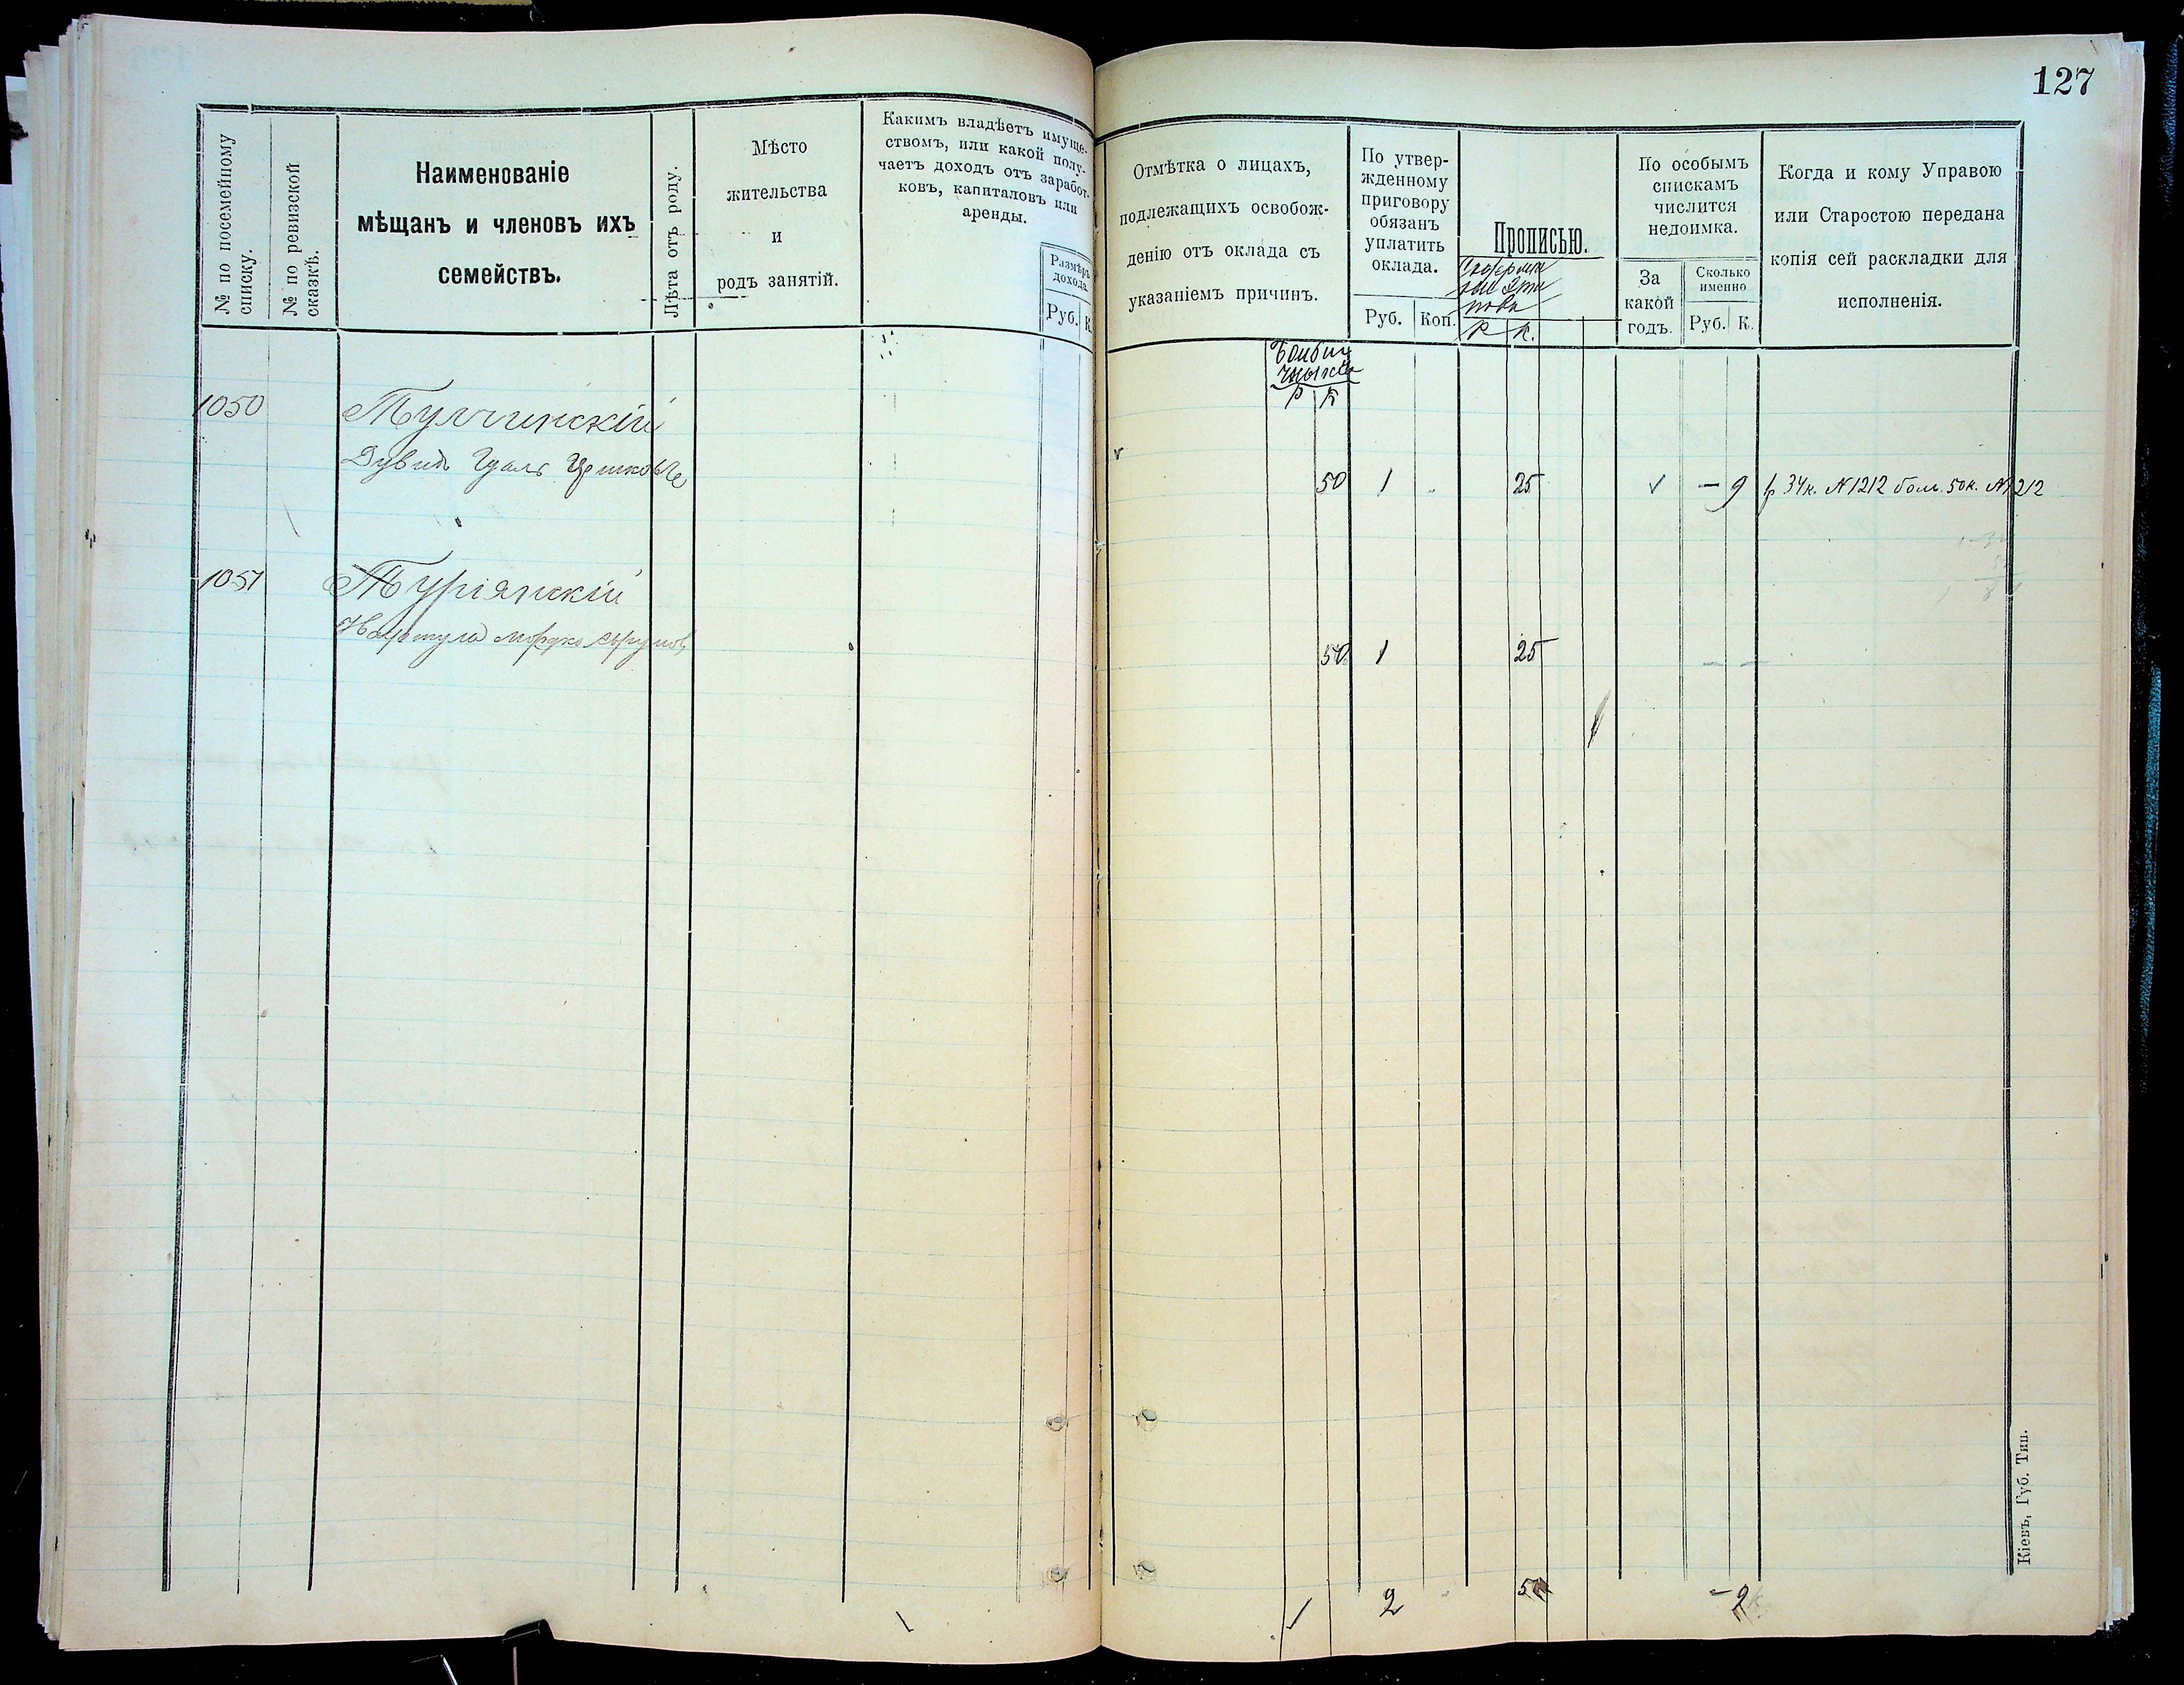 127
№ по посемейному
списку.
№ по ревизской
сказкѣ.
Наименованіе
мѣщанъ и членовъ ихъ
семействъ.
Лѣта отъ роду.
Мѣсто
жительства
и
родъ занятій.
Какимъ владѣетъ имуще-
ствомъ, или какой полу-
чаетъ доходъ отъ заработ-
ковъ, капиталовъ или
аренды.
Размѣръ
дохода.
Руб. К.
Отмѣтка о лицахъ,
подлежащихъ освобож-
денію отъ оклада съ
указаніемъ причинъ.
По утвер-
жденному
приговору
обязанъ
уплатить
оклада.
Руб. Коп.
Прописью.
Р К.
По особымъ
спискамъ
числится
недоимка.
За
какой
годъ.
Сколько
именно
Руб. К.
Когда и кому Управою
или Старостою передана
копія сей раскладки для
исполненія.
Р К
1050
Тульчинскій
Дувидъ
50 1 25 - 9 34к. №1212 бол. 50к. №1212
1051
Туріянскій
50 1 25 - -
1 2 50 - 9
Кіевъ, Губ. Тип.